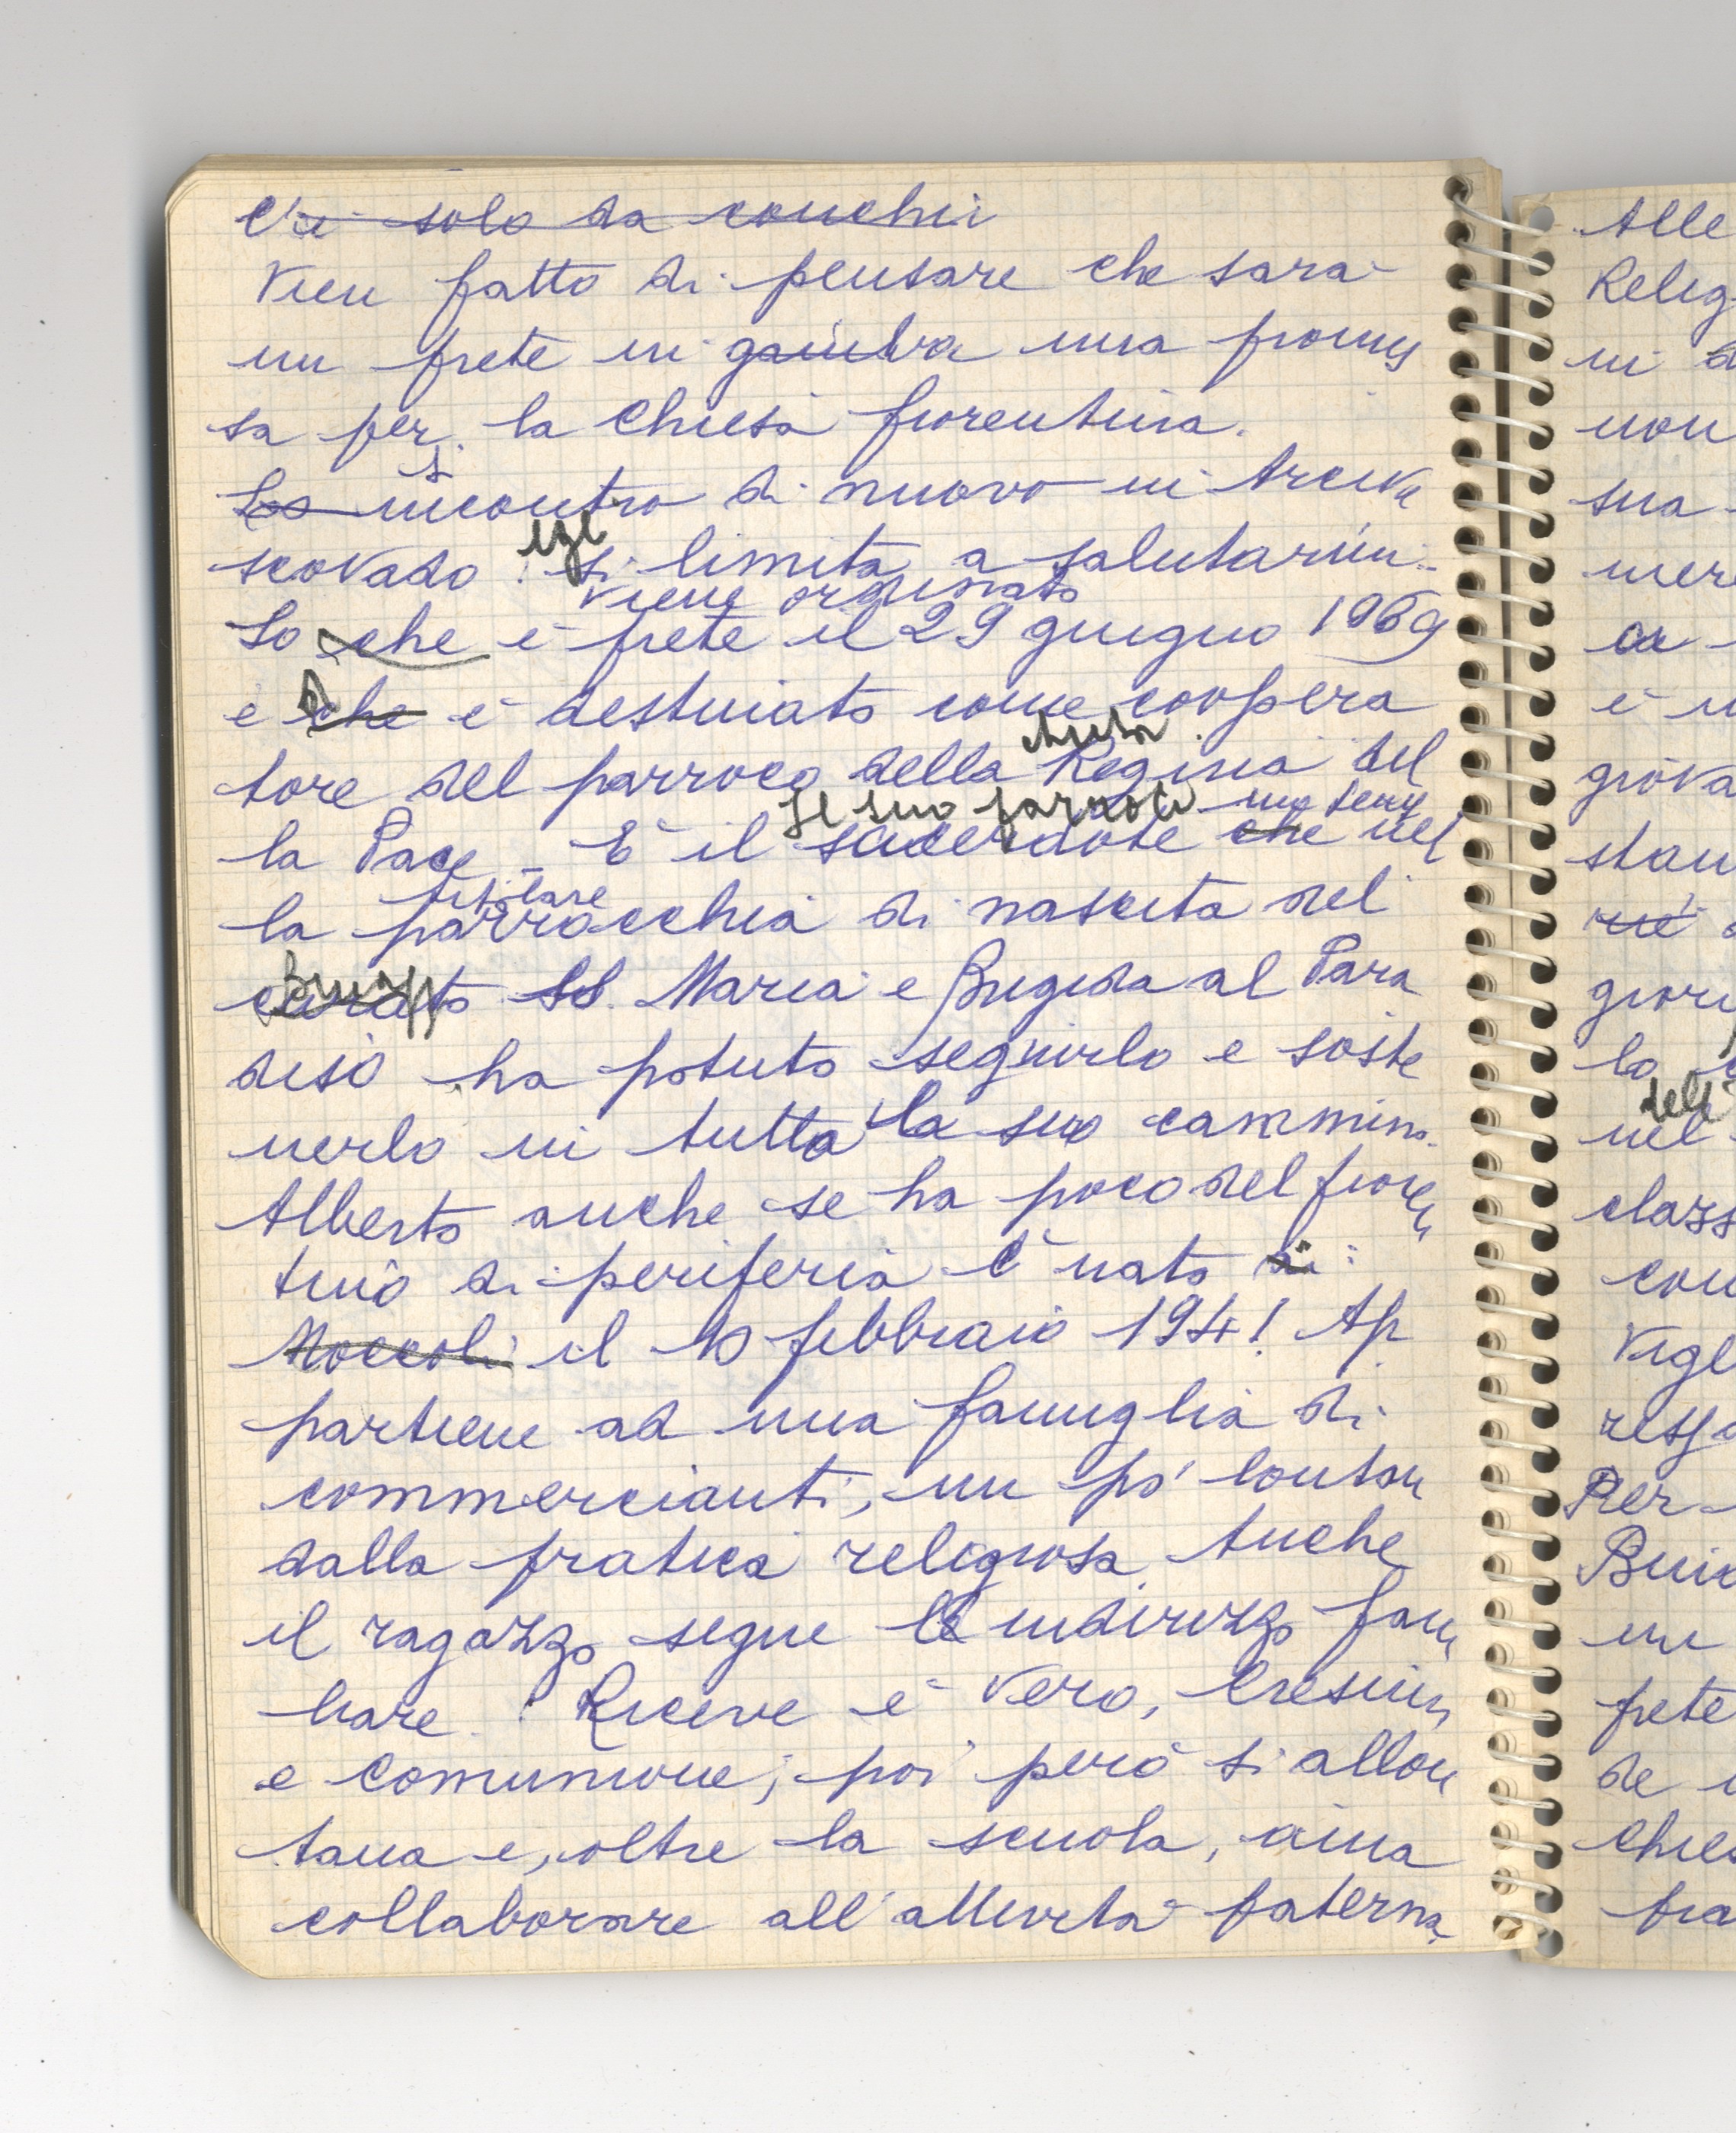 C'è solo da conchiu
Vien fatto di pensare che sarà
un prete in gamba una promes
sa per la Chiesa fiorentina.
Lo incontro di nuovo in Arcive
scovado: si limita a salutarmi.
viene ordinato
So che è prete il 29 giugno 1969
e che è destinato come coopera
tore del parroco della Regina del
Il suo parroco
la Pace. È il sacerdote che nel
titolare
la parrocchia di nascita del
curato SS. Maria e Brigida al Para
diso ha potuto seguirlo e soste
nerlo in tutto il suo cammino.
Alberto anche se ha poco del fioren
tino di periferia è nato ai
Moccoli il 10 febbraio 1941. Ap
partiene ad una famiglia di
commercianti, un po' lontan
dalla pratica religiosa. Anche
il ragazzo segue l'indirizzo fami
liare. Riceve è vero, Cresima
e Comunione; poi però si allon
tana e, oltre la scuola, ama
collaborare all'attività paterna,
Alle
Relig
in
non
sua
mer
è
giova
stan
gior
la
nel
class
con
Vigl
resp
Per
un
prete
de
Chies